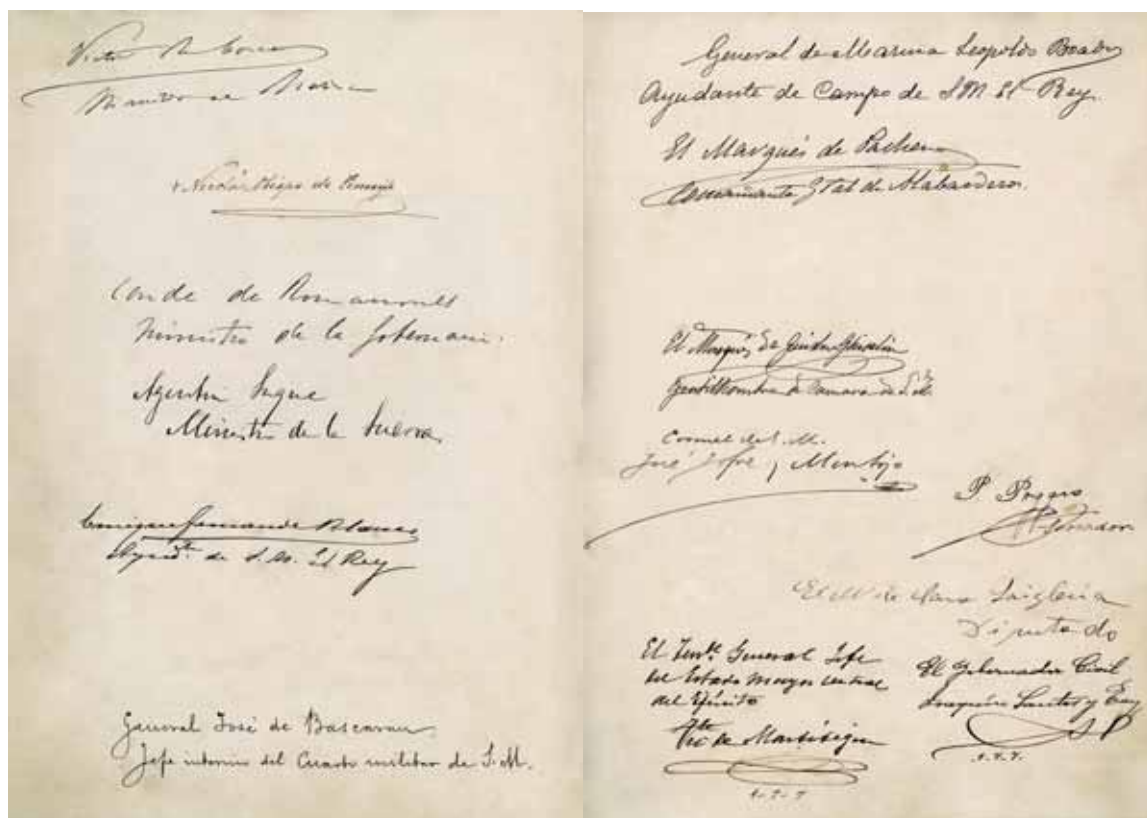 Victor M. Concas
Ministro de Marina
+ Nicolás
Conde de Romanones
Ministro de la Gobernacin
Agustin Luque
Ministro de la Guerra
Enrique Fernandez Blanco
Ayudte. de S. M. El Rey
General José de Bascaran
Jefe interino del Cuarto militar de S. M.
General de Marina Leopoldo Boado
Ayudante de Campo de S M El Rey
El Marqués de Pacheco
Comandante Gral de Alabarderos
El Marqués de
Gentilhombre de Camara de S. M.
Coronel de E. M.
José Jofre y Montojo
P. Poggio
Senador
El M de Santa
Diputado
El Tente. General Jefe
del Estado Mayor central
del Ejército
Vte. de Martitegui
El Gobernador Civil
Joaquin Santos y Ecay